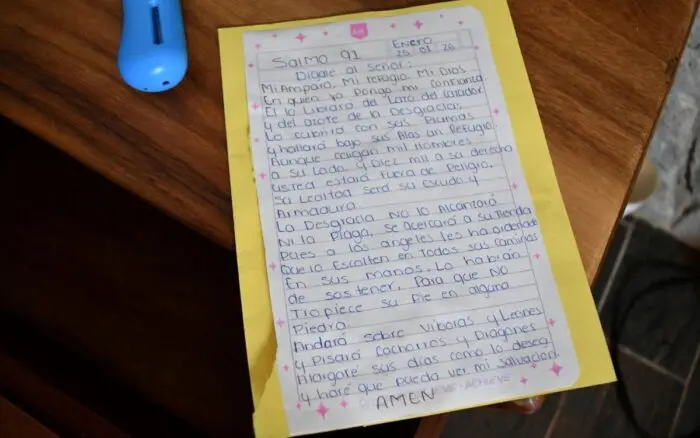 Salmo 91
Enero
25 01 26
Digale al Señor:
Mi Amparo, Mi refugio, Mi Dios
En quien yo Pongo mi confianza
El lo Librara del Lazo del cazador
y del azote de la Desgracia;
Lo cubrira con sus Plumas
y hallará bajo sus Alas un Refugio
Aunque caigan mil Hombres
a su Lado y Diez mil a su derecha
usted estará fuera de Peligro.
su Lealtad será su Escudo y
Armadura.
La Desgracia No lo Alcantará
Ni la Plaga, se Acercará a su Tienda
Pues a los angeles les ha ordenado
Que lo Escolten en Todos sus Caminos
En sus manos. Lo habrán
de sostener, Para que No
Tropiece su Pie en alguna
Piedra
Andará sobre Viboras y Leones
y Pisará Cachorros y Dragones
Alargaré sus días como lo desea
y haré que pueda ver mi salvación.
AMEN
ACHIEVE